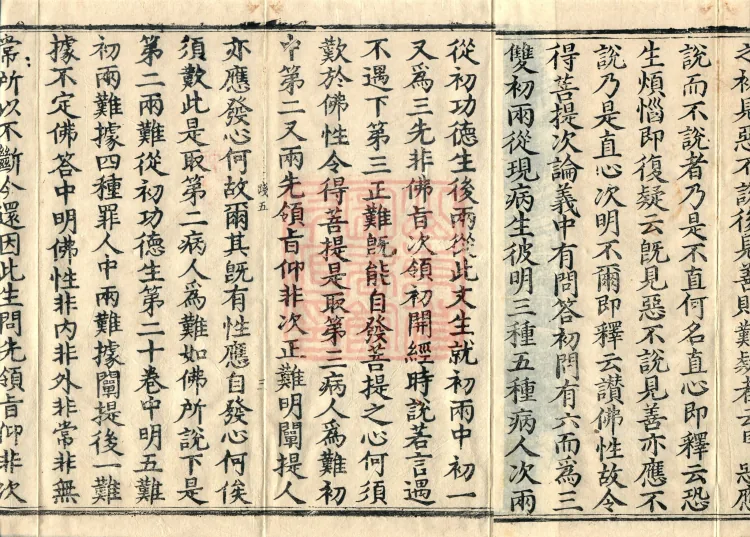 說而不說者乃是不直何名直心即釋云恐
生煩惱即復疑云旣見惡不說見善亦應不
說乃是直心次明不爾即釋云讃佛性故令
得菩提次論義中有問答初問有六而為三
雙初兩從現病生彼明三種五種病人次兩
從初功德生後兩從此文生就初兩中初一
又為三先非佛旨次領初開經時說若言遇
不遇下第三正難旣能自發菩提之心何須
歎於佛性令得菩提是取第三病人為難初
中第二又兩先領旨仰非次正難明闡提人
亦應發心何故爾其旣有性應自發心何俟
須歎此是取第二病人為難如佛所說下是
第二兩難從初功德生第二十卷中明五難
初兩難據四種罪人中兩難據闡提後一難
據不定佛答中明佛性非內非外非常非無
常所以不斷今還因此生問先領旨仰非次